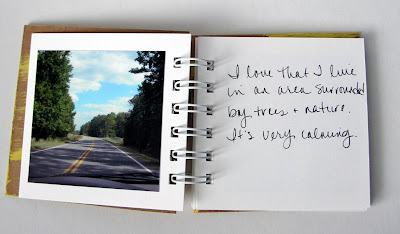 I love that I live
in an area surrounded
by trees + nature.
It's very calming.